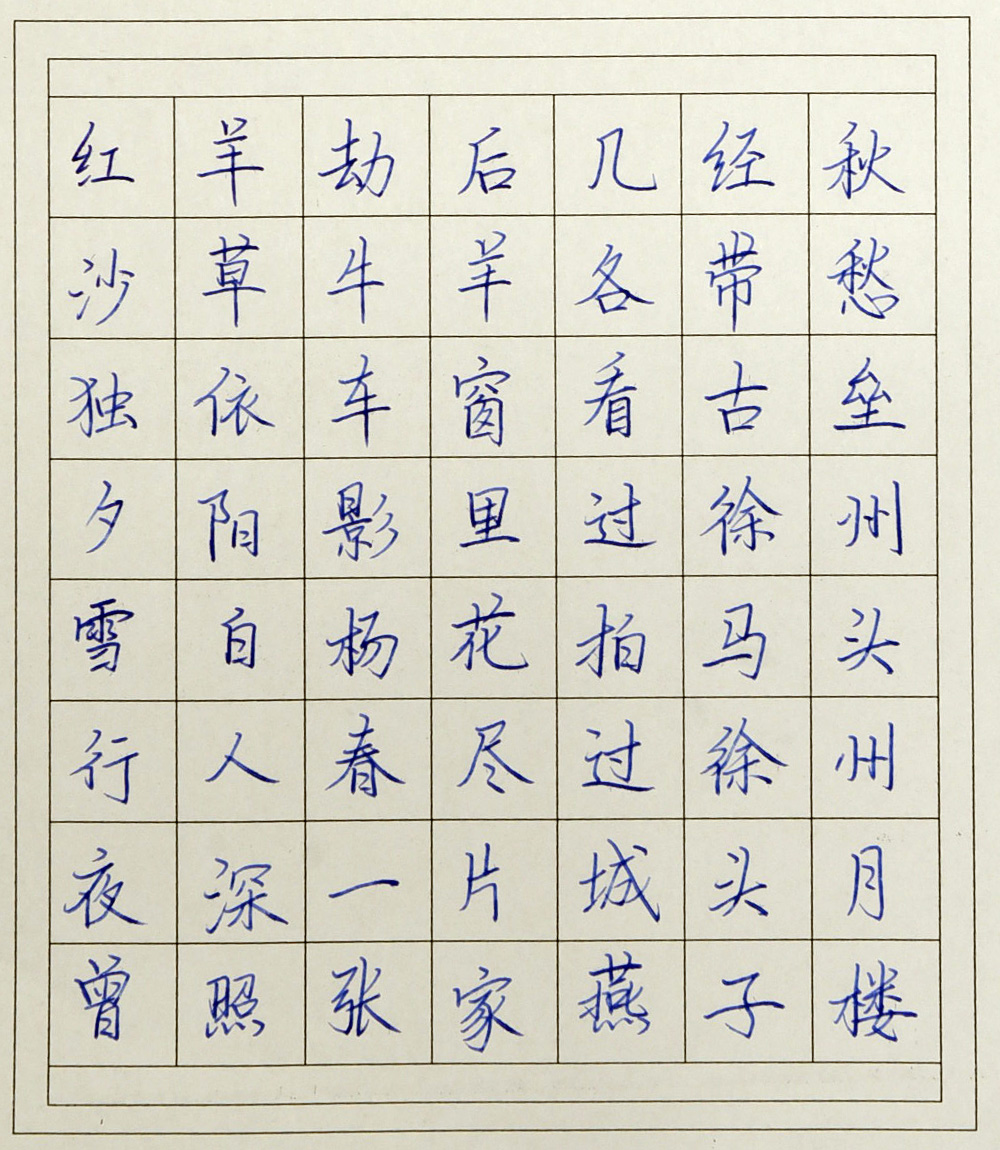 红羊劫后几经秋
沙草牛羊各带愁
独依车窗看古垒
夕阳影里过徐州
雪白杨花拍马头
行人春尽过徐州
夜深一片城头月
曾照张家燕子楼